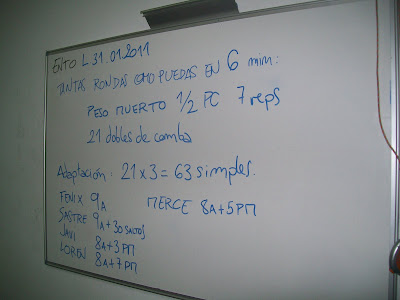 ENTO L 31.01.2011
TANTAS RONDAS COMO PUEDAS EN 6 min:
PESO MUERTO 1/2 PC 7 reps
21 dobles de comba
Adaptación: 21 x 3 = 63 simples.
FENIX 9A
SASTRE 9A + 30 SALTOS
JAVI 8A + 3 PM
LOREN 8A + 7 PM
MERCE 8A + 5 PM